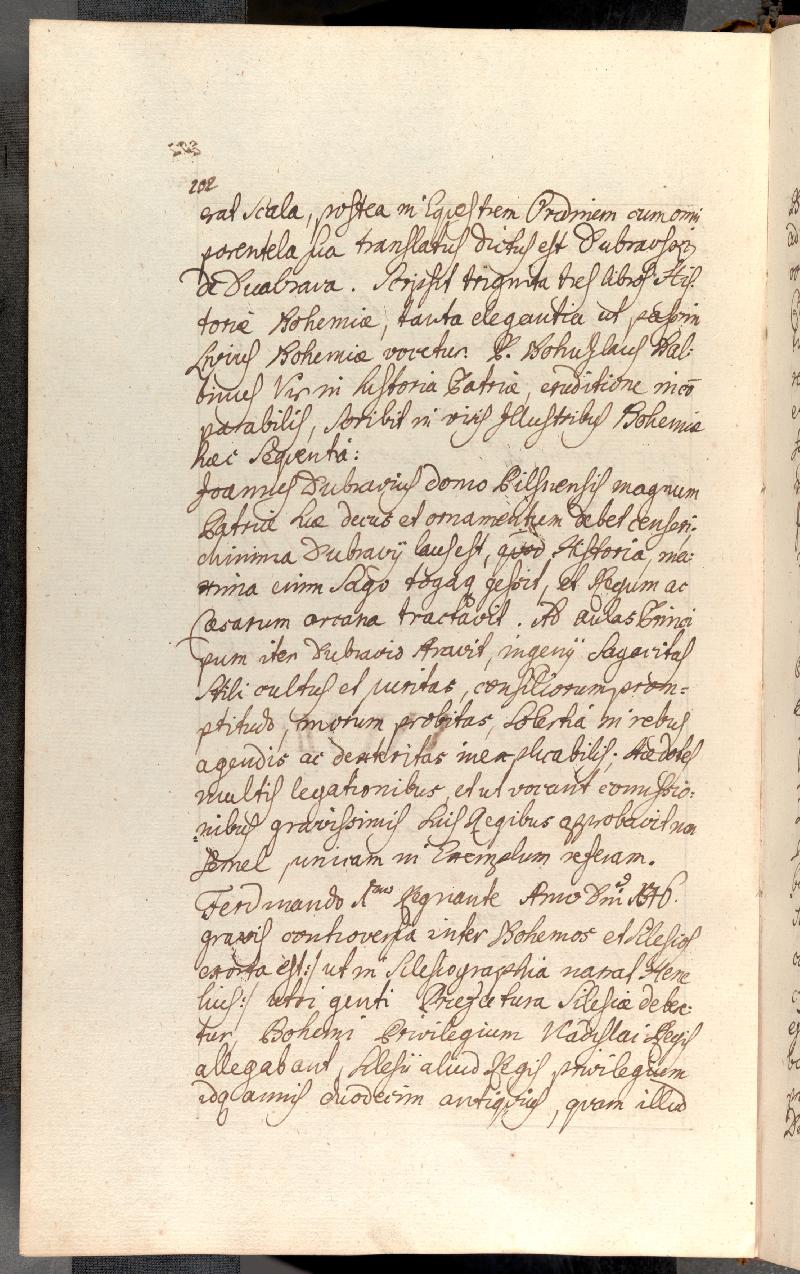 202
erat Scala, postea in Eqvestrem Ordinem cum omni
parentela sua translatus dictus est Dubravsky
de Duabrava. Scripsit triginta tres libros His-
toriæ Bohemiæ, tanta elegantia ut passim
Livius Bohemiæ vocetur. P. Bohuslaus Bal:
binus Vir in historia Patriæ, eruditione incō
parabilis, scribit in viris Illustribus Bohemiæ
hæc Seqventia:
Joannes Dubravius domo Pilsnensis magnum
Patriæ suæ decus et ornamentum debet censeri.
Minima Dubravij laus est, quod Historia, ma:
xima enim Sago togaq gessit, et Regum ac
Cæsarum arcana tractavit. Ad aulas Princi
pum iter Dubravio stravit, ingenij Sagacitas
Stili cultus et puritas, consiliorum prom=
ptitudo, morum probitas, Solertia in rebus
agendis ac dexteritas inexplicabilis; Hæ dotes
multis legationibus, et ut vocant comissio:
nibus gravissimis suis Regibus approbavit non
Semel, unicam in Exemplum referam.
Ferdinando 1mo Regnante Anno Dni 1546.
gravis controversia inter Bohemos et Silesios
exorta est :/ ut in Silesiographia narrat Hene
lius :/ utri genti Præfectura Silesiæ debere:
tur, Bohemi Privilegium Vladislai Regis
allegabant, Silesii aliud Regis privilegium
idq annis duodecim antiqvius, qvam illud